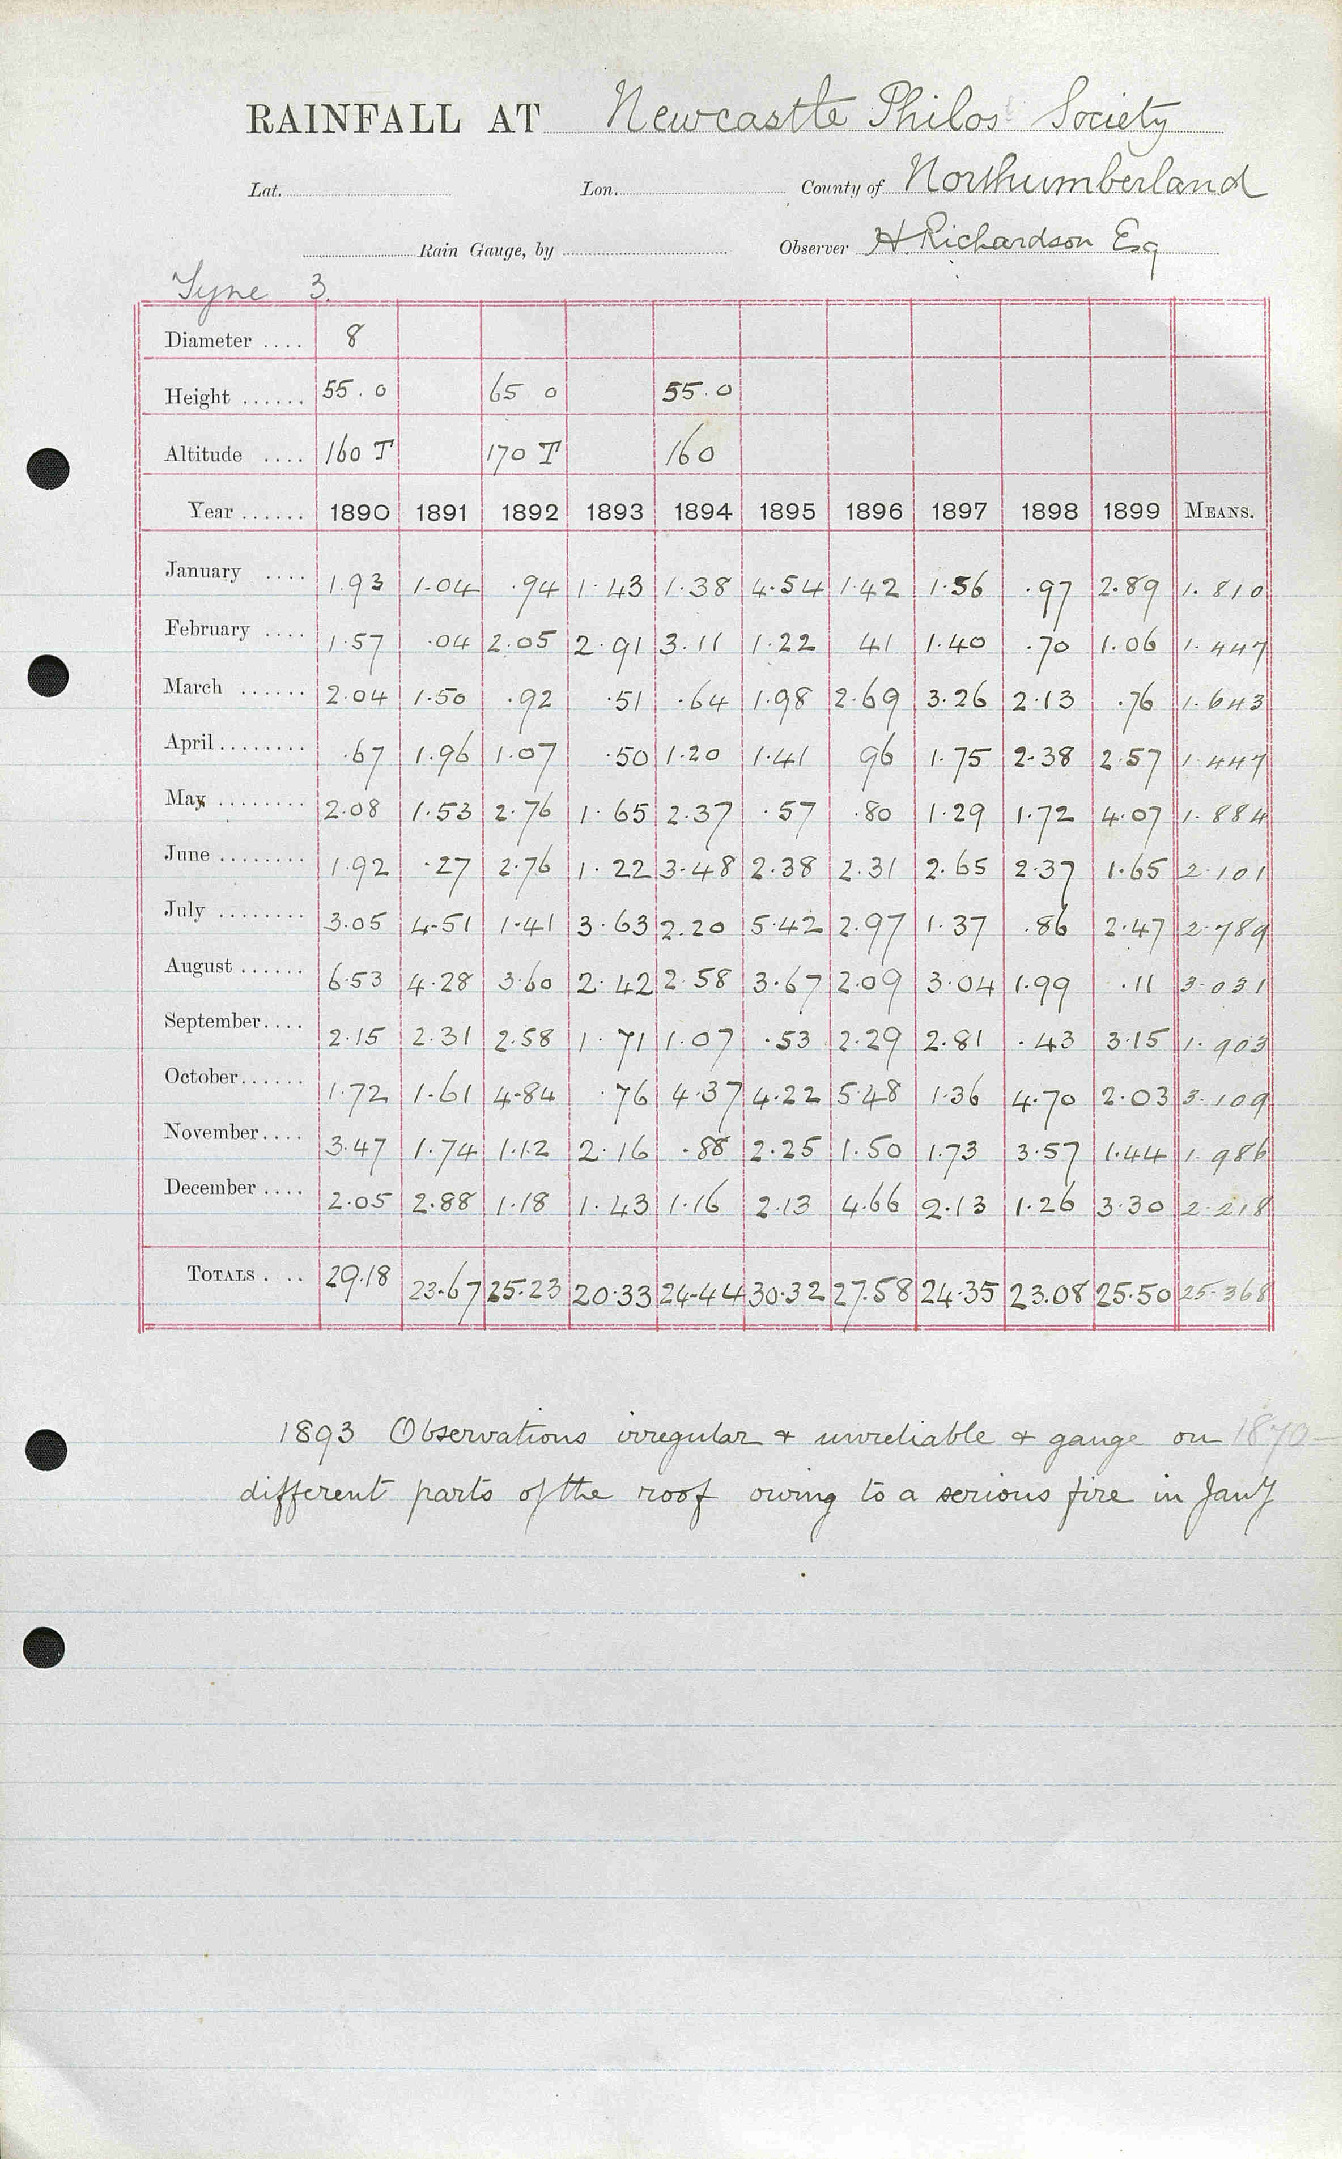 RAINFALL AT Newcastle Philos Society
Lat. Lon. County of Northumberland
Rain Gauge, by Observer H Richardson Esq
Tyne 3.
Diameter .... 8
Height ...... 55.0 65 0 55.0
Altitude .... 160 T 170 T 160
Year ...... 1890 1891 1892 1893 1894 1895 1896 1897 1898 1899 MEANS.
January .... 1.93 1.04 .94 1.43 1.38 4.54 1.42 1.56 .97 2.89 1.810
February .... 1.57 .04 2.05 2.91 3.11 1.22 41 1.40 .70 1.06 1.447
March ...... 2.04 1.50 .92 .51 .64 1.98 2.69 3.26 2.13 .76 1.643
April ........ .67 1.96 1.07 .50 1.20 1.41 96 1.75 2.38 2.57 1.447
May ........ 2.08 1.53 2.76 1.65 2.37 .57 .80 1.29 1.72 4.07 1.884
June ........ 1.92 .27 2.76 1.22 3.48 2.38 2.31 2.65 2.37 1.65 2.101
July ........ 3.05 4.51 1.41 3.63 2.20 5.42 2.97 1.37 .86 2.47 2.789
August ...... 6.53 4.28 3.60 2.42 2.58 3.67 2.09 3.04 1.99 .11 3.031
September.... 2.15 2.31 2.58 1.71 1.07 .53 2.29 2.81 .43 3.15 1.903
October...... 1.72 1.61 4.84 .76 4.37 4.22 5.48 1.36 4.70 2.03 3.109
November.... 3.47 1.74 1.12 2.16 .88 2.25 1.50 1.73 3.57 1.44 1.986
December .... 2.05 2.88 1.18 1.43 1.16 2.13 4.66 2.13 1.26 3.30 2.218
TOTALS . .. 29.18 23.67 25.23 20.33 24.44 30.32 27.58 24.35 23.08 25.50 25.368
1893 Observations irregular & unreliable & gauge on 1870-
different parts of the roof owing to a serious fire in Jany